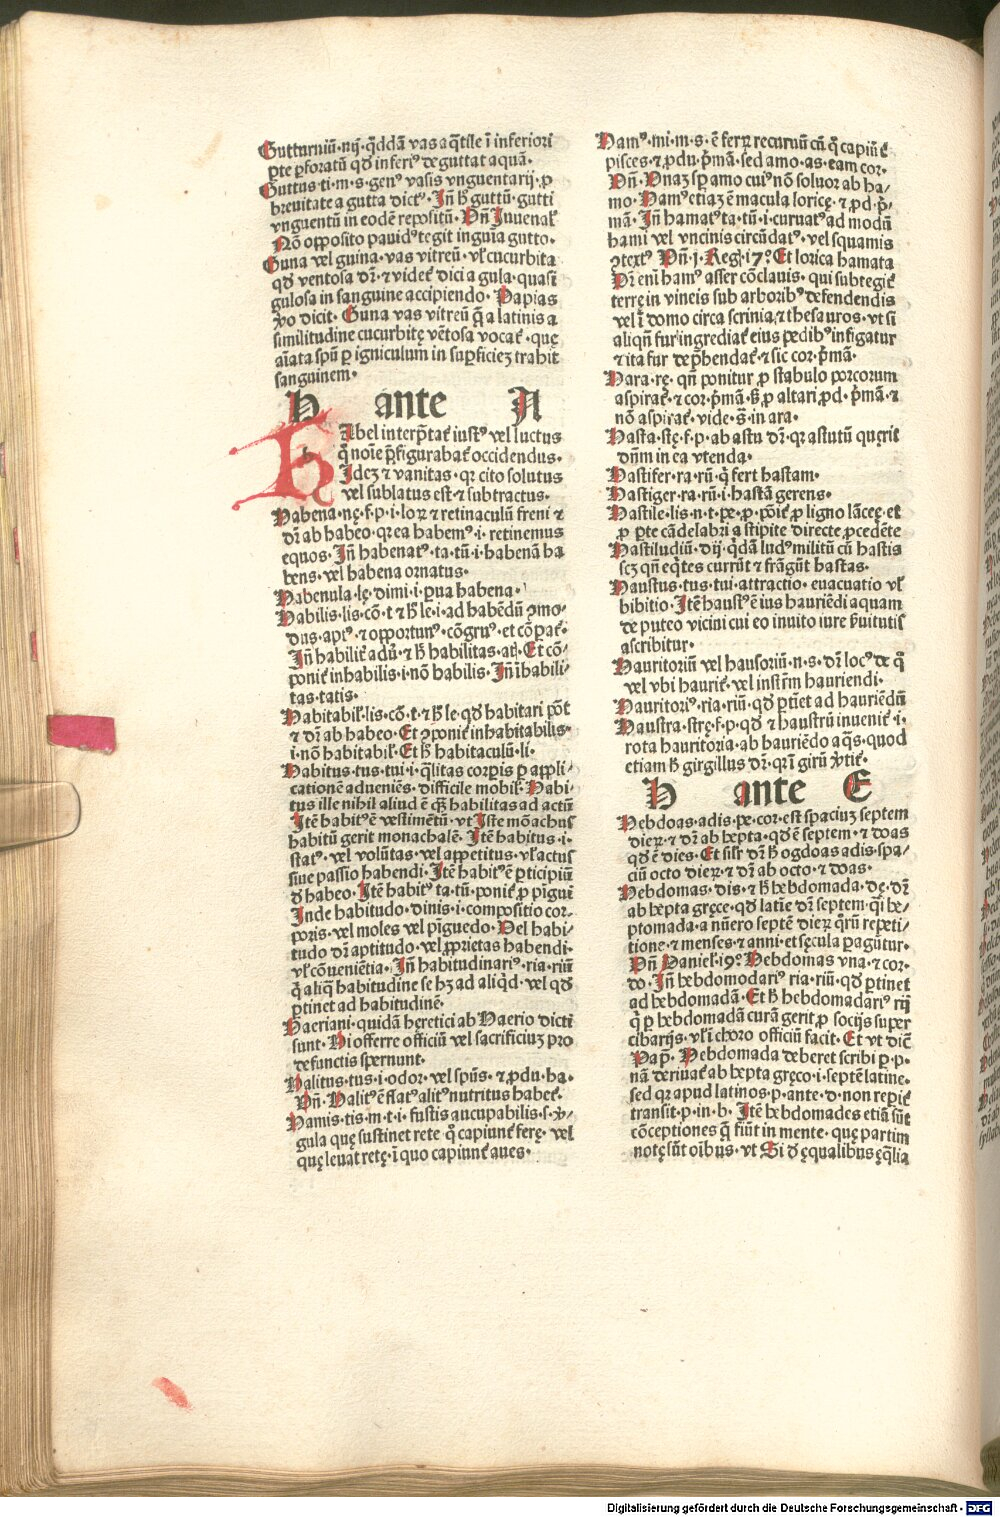 Gutturniū·nij·q̄ddā vas aq̄tile ī inferiori
ꝑte ꝑforatū qd̄ inferiꝰ deguttat aquā·
Guttus·ti·m·s·genꝰ vasis vnguentarij·ꝓ
breuitate a gutta dictꝰ· In̄ h̄ guttū·gutti
vnguentū in eodē repositū· Vn̄ Iuuenal̄
Nō opposito pauidꝰ tegit inguīa gutto·
Guna vel guina·vas vitreū·vl̄ cucurbita
qd̄ ventosa dr̄·et videt̄ dici a gula·quasi
gulosa in sanguine accipiendo· Papias
ꝟo dicit· Guna vas vitreū q̄ a latinis a
similitudine cucurbitę vētosa vocat̄·que
aīata spū ꝑ igniculum in suꝑficieꝫ trahit
sanguinem·
H ante A
Abel interp̄tat̄ iustꝰ vel luctus
q̄ noīe p̄figurabat̄ occidendus·
Ideꝫ et vanitas·qꝛ cito solutus
vel sublatus est·et subtractus·
Habena·nę·f·p·i·loꝝ et retinaculū freni et
dr̄ ab habeo·qꝛ ea habemꝰ·i·retinemus
equos· In̄ habenatꝰ·ta·tū·i·habenā ha
bens·vel habena ornatus·
Habenula·lę·dimi·i·ꝑua habena·
Habilis·lis·cō·t et h̄ le·i·ad habēdū ꝯmo-
dus·aptꝰ·et opportunꝰ·cōgruꝰ·et cōꝑat̄·
In̄ habilit̄ adū·et h̄ habilitas·atꝭ· Et cō-
ponit̄ inhabilis·i·nō habilis· In̄ īhabili-
tas·tatis·
Habitabil̄·lis·cō·t·et h̄ le·qd̄ habitari pōt
et dr̄ ab habeo· Et ꝯponit̄ inhabitabilis·
i·nō habitabil̄· Et h̄ habitaculū·li·
Habitus·tus·tui·i·q̄litas corꝑis ꝑ appli-
cationē adueniēs·difficile mobil̄· Habi-
tus ille nihil aliud ē qꝫ habilitas ad actū
Itē habitꝰ ē vestimētū·vt Iste mōachus
habitū gerit monachalē· Itē habitus·i·
statꝰ·vel volūtas·vel appetitus·vl̄ actus
siue passio habendi· Itē habitꝰ ē ꝑticipiū
d̄ habeo· Itē habitꝰ ta·tū·ponit̄ ꝓ pīgui
Inde habitudo·dinis·i·compositio cor-
poris·vel moles vel pīguedo· Vel habi-
tudo dr̄ aptitudo·vel ꝓprietas habendi·
vl̄ cōueniētia· In̄ habitudinariꝰ·ria·riū
q̄ aliq̄ habitudine se hꝫ ad aliqd̄·vel qd̄
ꝑtinet ad habitudinē·
Haeriani·quidā heretici ab Haerio dicti
sunt· Hi offerre officiū vel sacrificiuꝫ pro
defunctis spernunt·
Halitus·tus·i·odor·vel spūs·et ꝓdu·ha·
Vn̄· Halitꝰ ē flatꝰ alitꝰ nutritus habet̄·
Hamis·tis·m·t·i·fustis aucupabilis·s·ꝟ-
gula quę sustinet rete q̄ capiunt̄ ferę·vel
quę leuat retę·ī quo capiunt̄ aues·
Hamꝰ·mi·m·s·ē ferꝝ recuruū cū q̄ capiūt̄
pisces·et ꝓdu·p̄mā·sed amo·as·eam cor·
Vn̄· Vnaꝫ sꝑ amo cuiꝰ nō soluor ab ha-
mo· Hamꝰ etiaꝫ ē macula loricę·et ꝓd·p̄-
mā· In̄ hamatꝰ·ta·tū·i·curuatꝰ ad modū
hami vel vncinis circūdatꝰ·vel squamis
ꝯtextꝰ Vn̄·j·Reg̃·17°· Et lorica hamata
Dr̄ enī hamꝰ asser cōclauis·qui subtegit̄
terrę in vineis sub arboribꝰ defendendis
vel ī domo circa scrinia·et thesauros·vt si
aliqn̄ fur ingrediat̄ eius pedibꝰ infigatur
et ita fur dep̄hendat̄·et sic cor·p̄mā·
Hara·rę·qn̄ ponitur ꝓ stabulo porcorum
aspirat̄·et cor·p̄mā·s̄ꝫ ꝓ altari ꝓd·p̄mā·et
nō aspirat̄·vide·s̄·in ara·
Hasta·stę·f·p·ab astu dr̄·qꝛ astutū querit
dn̄m in ea vtenda·
Hastifer·ra·rū·q̄ fert hastam·
Hastiger·ra·rū·i·hastā gerens·
Hastile·lis·n·t·ꝓe·ꝓ·pōit̄ ꝓ ligno lācęę·et
ꝓ ꝑte cādelabri a stipite directe ꝓcedēte
Hastiludiū·dij·q̄dā ludꝰ militū cū hastis
scꝫ qn̄ eq̄tes currūt et frāgūt hastas·
Haustus·tus·tui·attractio·euacuatio vl̄
bibitio· Itē haustꝰ ē ius hauriēdi aquam
de puteo vicini cui eo inuito iure ẜuitutis
ascribitur·
Hauritoriū vel hausoriū·n·s·dr̄ locꝰ de q̄
vel vbi haurit̄·vel instr̄m hauriendi·
Hauritoriꝰ·ria·riū·qd̄ ꝑtiet ad hauriēdū
Haustra·strę·f·p·qd̄ et haustrū inuenit̄·i·
rota hauritoria·ab hauriēdo aq̄s·quod
etiam h̄ girgillus dr̄·qꝛ ī girū ꝟtit̄·
H ante E
Hebdoas·adis·ꝓe·cor·est spaciuꝫ septem
dieꝝ·et dr̄ ab hepta·qd̄ ē septem·et doas
qd̄ ē dies· Et sil̄r dr̄ h̄ ogdoas adis·spa-
ciū octo dieꝝ·et dr̄ ab octo·et doas·
Hebdomas·dis·et h̄ hebdomada·dę·dr̄
ab hepta gręce·qd̄ latīe dr̄ septem·q̄i he-
ptomada·a nūero septē dieꝝ q̄rū repeti-
tione·et menses·et anni·et sęcula ꝑagūtur·
Vn̄ Daniel̄·19°· Hebdomas vna·et cor·
do· In̄ hebdomodariꝰ ria·riū·qd̄ ꝑtinet
ad hebdomadā· Et h̄ hebdomadariꝰ rij
q̄ ꝑ hebdomadā curā gerit ꝓ socijs super
cibarijs·vl̄ ī choro officiū facit· Et vt dic̄
Pap̄· Hebdomada deberet scribi ꝑ p·
nā deriuat̄ ab hepta gręco·i·septē latine·
sed qꝛ apud latinos·p·ante·d·non reperit̄
transit·p·in·b· Itē hebdomades etiā sūt
cōceptiones q̄ fiūt in mente·quę partim
notę sūt oībus·vt Si d̄ ęqualibus ęq̄lia
Digitalisierung gefördert durch die Deutsche Forschungsgemeinschaft - DFG